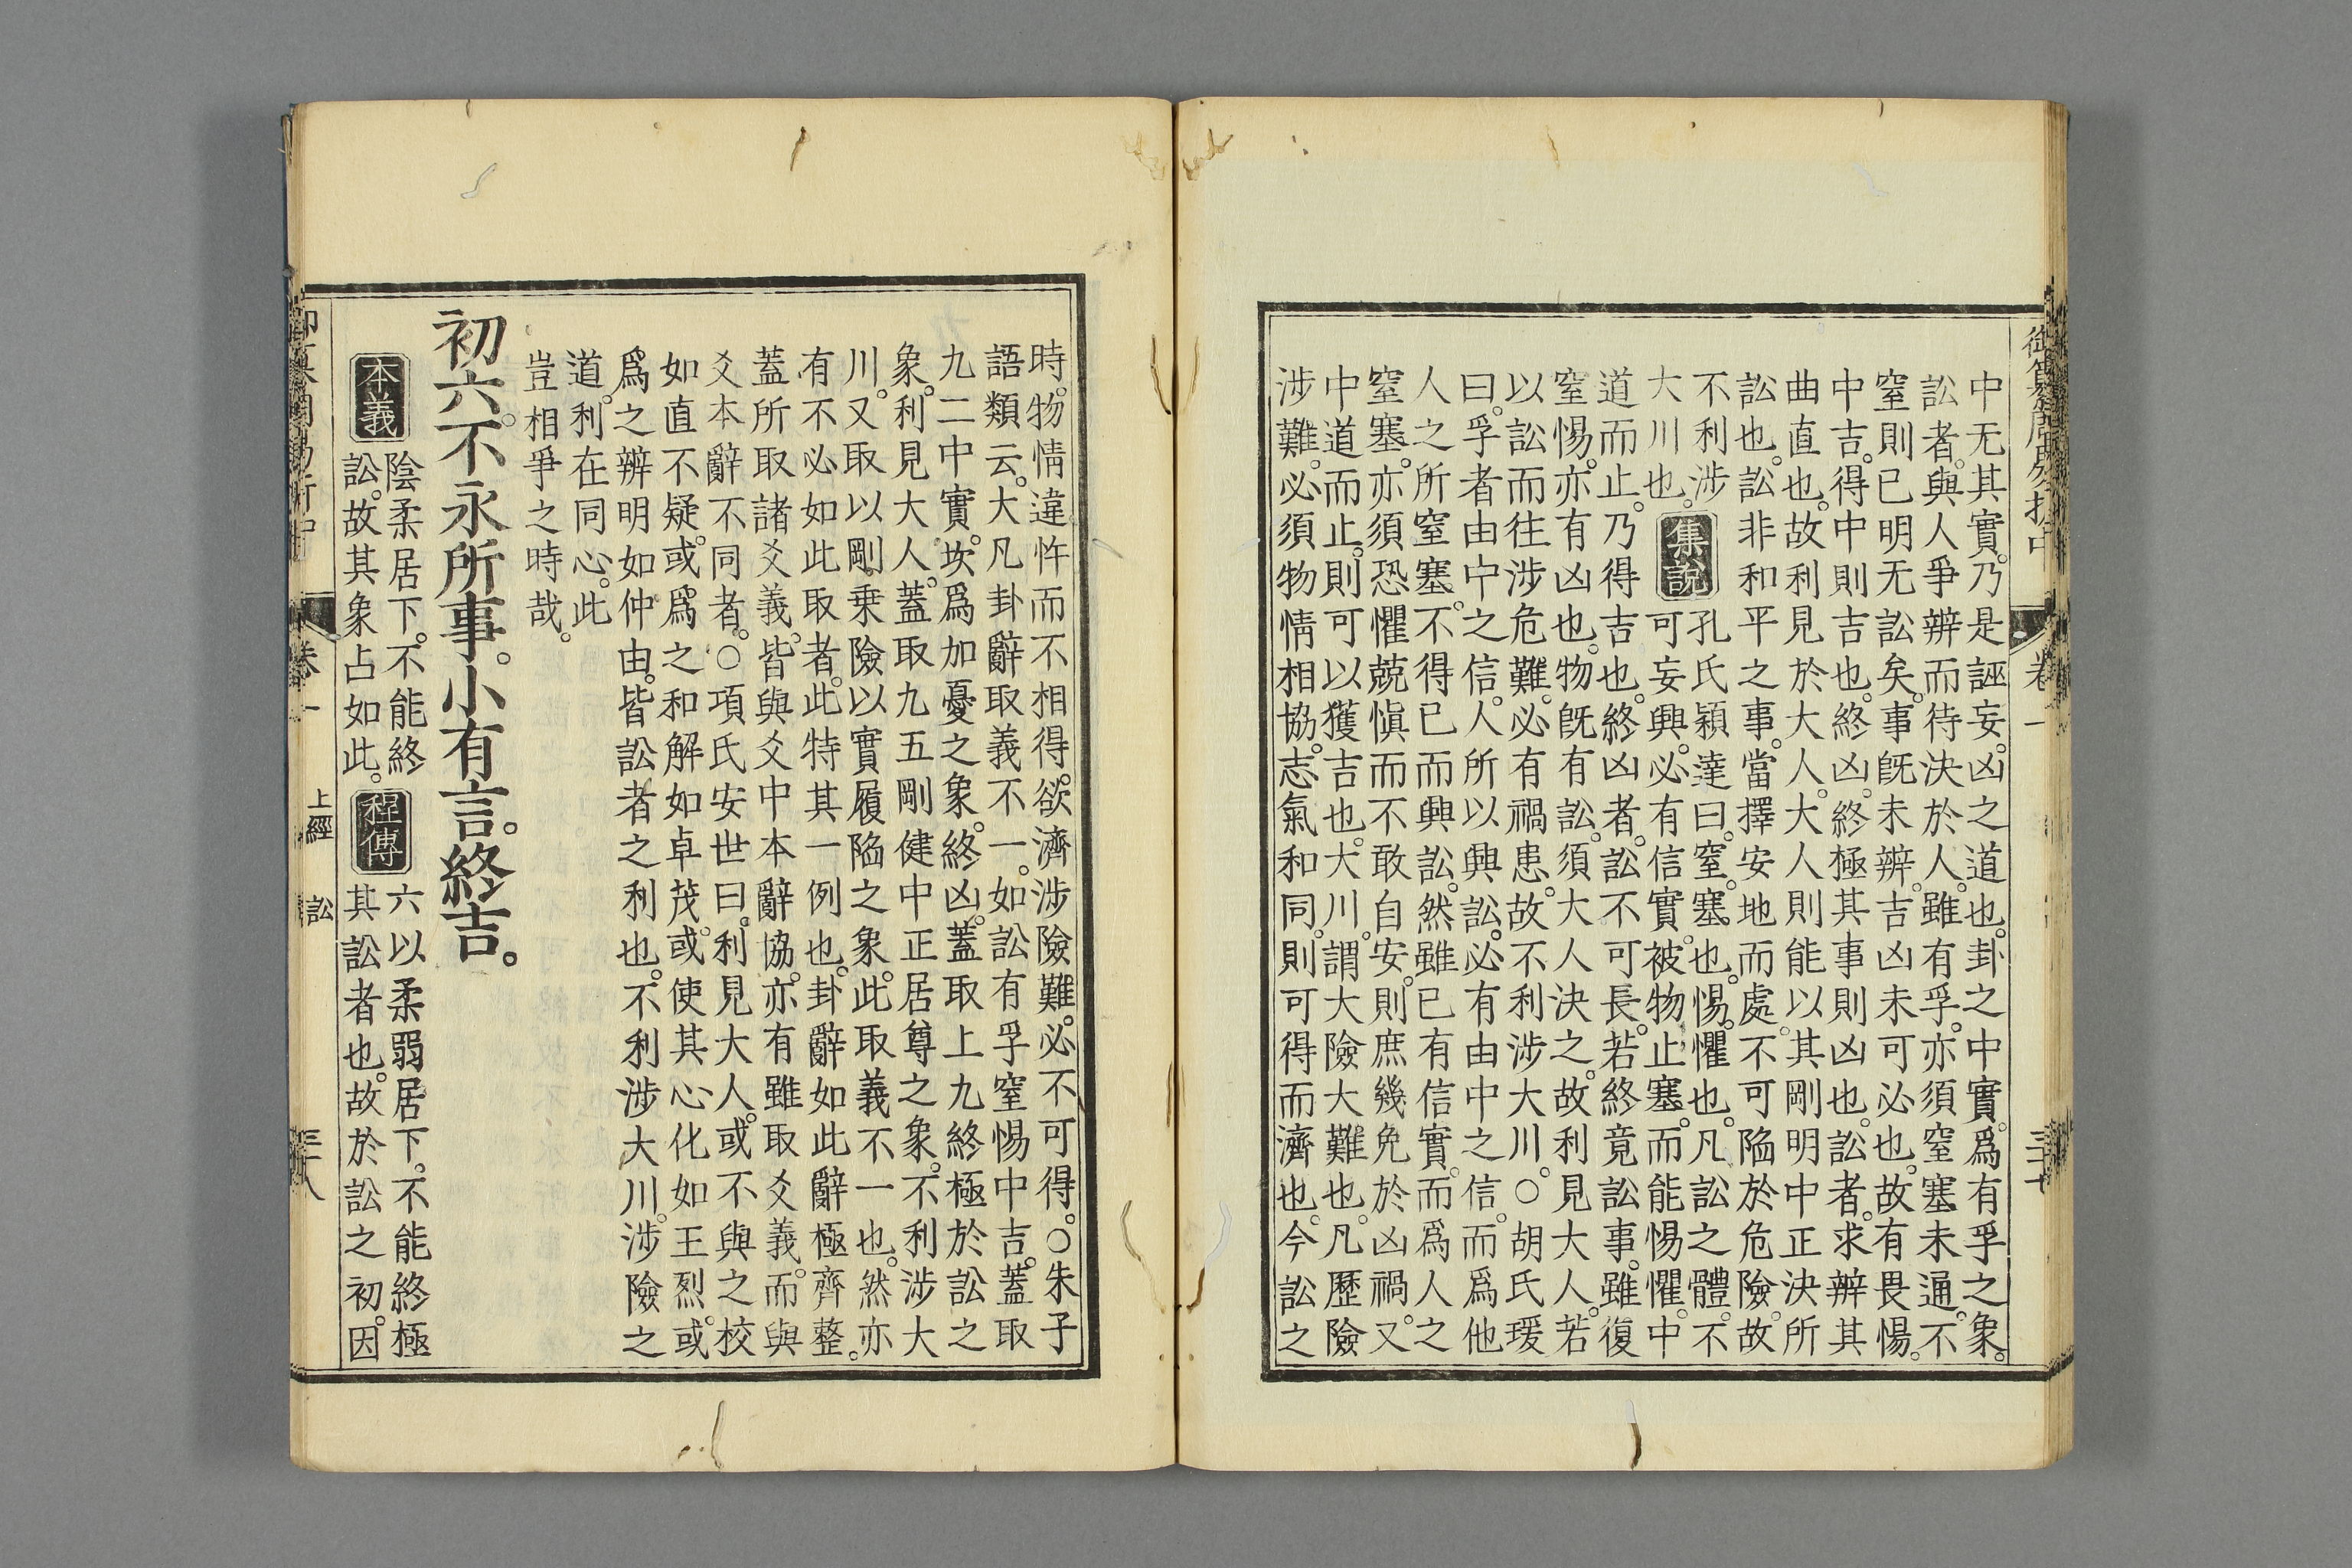 中无其實乃是誣妄凶之道也卦之中實爲有孚之象
訟者與人爭辨而待決於人雖有孚亦須窒塞未通不
窒則已明无訟矣事旣未辨吉凶未可必也故有畏惕
中吉得中則吉也終凶終極其事則凶也訟者求辨其
曲直也故利見於大人大人則能以其剛明中正決所
訟也訟非和平之事當擇安地而處不可陷於危險故
不利涉
大川也
集說
孔氏穎達曰窒塞也惕懼也凡訟之體不
可妄興必有信實被物止塞而能惕懼中
道而止乃得吉也終凶者訟不可長若終竟訟事雖復
窒惕亦有凶也物旣有訟須大人決之故利見大人若
以訟而往涉危難必有禍患故不利涉大川○胡氏瑗
曰孚者由中之信人所以興訟必有由中之信而爲他
人之所窒塞不得已而興訟然雖已有信實而爲人之
窒塞亦須恐懼兢愼而不敢自安則庶幾免於凶禍又
中道而止則可以獲吉也大川謂大險大難也凡歷險
涉難必須物情相協志氣和同則可得而濟也今訟之
卷一
時物情違忤而不相得欲濟涉險難必不可得○朱子
語類云大凡卦辭取義不一如訟有孚窒惕中吉蓋取
九二中實坎爲加憂之象終凶蓋取上九終極於訟之
象利見大人蓋取九五剛健中正居尊之象不利涉大
川又取以剛乘險以實履陷之象此取義不一也然亦
有不必如此取者此特其一例也卦辭如此辭極齊整
蓋所取諸爻義皆與爻中本辭協亦有雖取爻義而與
爻本辭不同者○項氏安世曰利見大人或不與之校
如直不疑或爲之和解如卓茂或使其心化如王烈或
爲之辨明如仲由皆訟者之利也不利涉大川涉險之
道利在同心此
豈相爭之時哉
初六不永所事小有言終吉
本義
陰柔居下不能終
訟故其象占如此
程傳
六以柔弱居下不能終極
其訟者也故於訟之初因
上經 訟